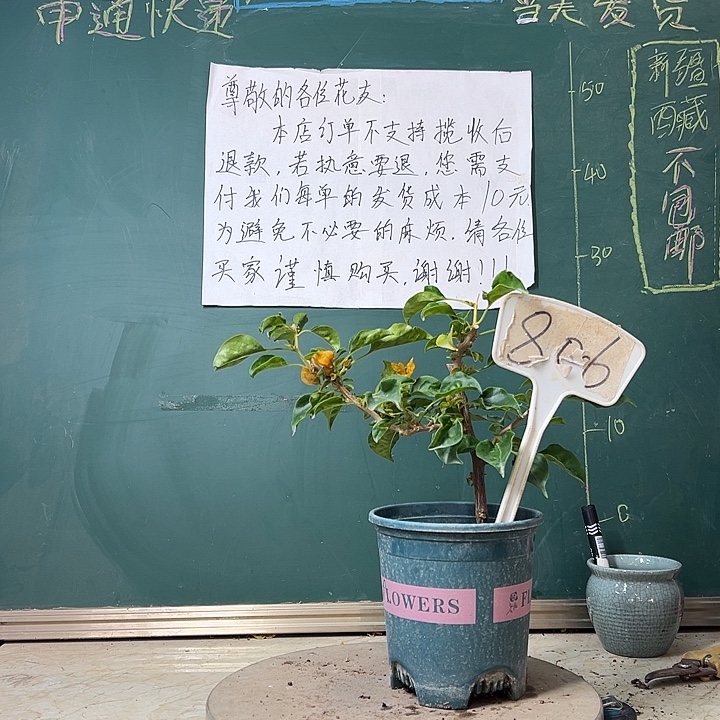 申通快递
当天发货
尊敬的各位花友:
本店订单不支持揽收后
退款,若执意要退,您需支
付我们每单的发货成本10元
为避免不必要的麻烦.请各位
买家谨慎购买,谢谢!!!
新疆
西藏
不包邮
50
40
30
10
0
806
FLOWERS